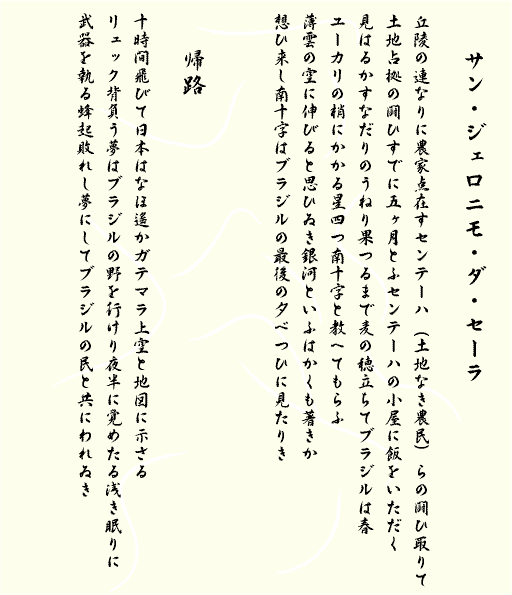 サン・ジェロニモ・ダ・セーラ
丘陵の連なりに農家点在すセンテーハ（土地なき農民）らの闘ひ取りて
土地占拠の闘ひすでに五ヶ月とふセンテーハの小屋に飯をいただく
見はるかすなだりのうねり果つるまで麦の穂立ちてブラジルは春
ユーカリの梢にかかる星四つ南十字と教へてもらふ
薄雲の空に伸びると思ひゐき銀河といふはかくも著きか
想ひ来し南十字はブラジルの最後の夕べつひに見たりき
帰路
十時間飛びて日本はなほ遥かガテマラ上空と地図に示さる
リュック背負う夢はブラジルの野を行けり夜半に覚めたる浅き眠りに
武器を執る蜂起敗れし夢にしてブラジルの民と共にわれゐき